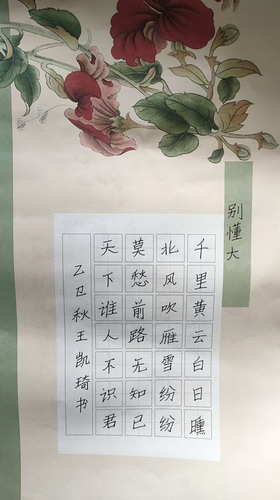 别懂大
千里黄云白日曛
北风吹雁雪纷纷
莫愁前路无知已
天下谁人不识君
乙卫秋王凯琦书